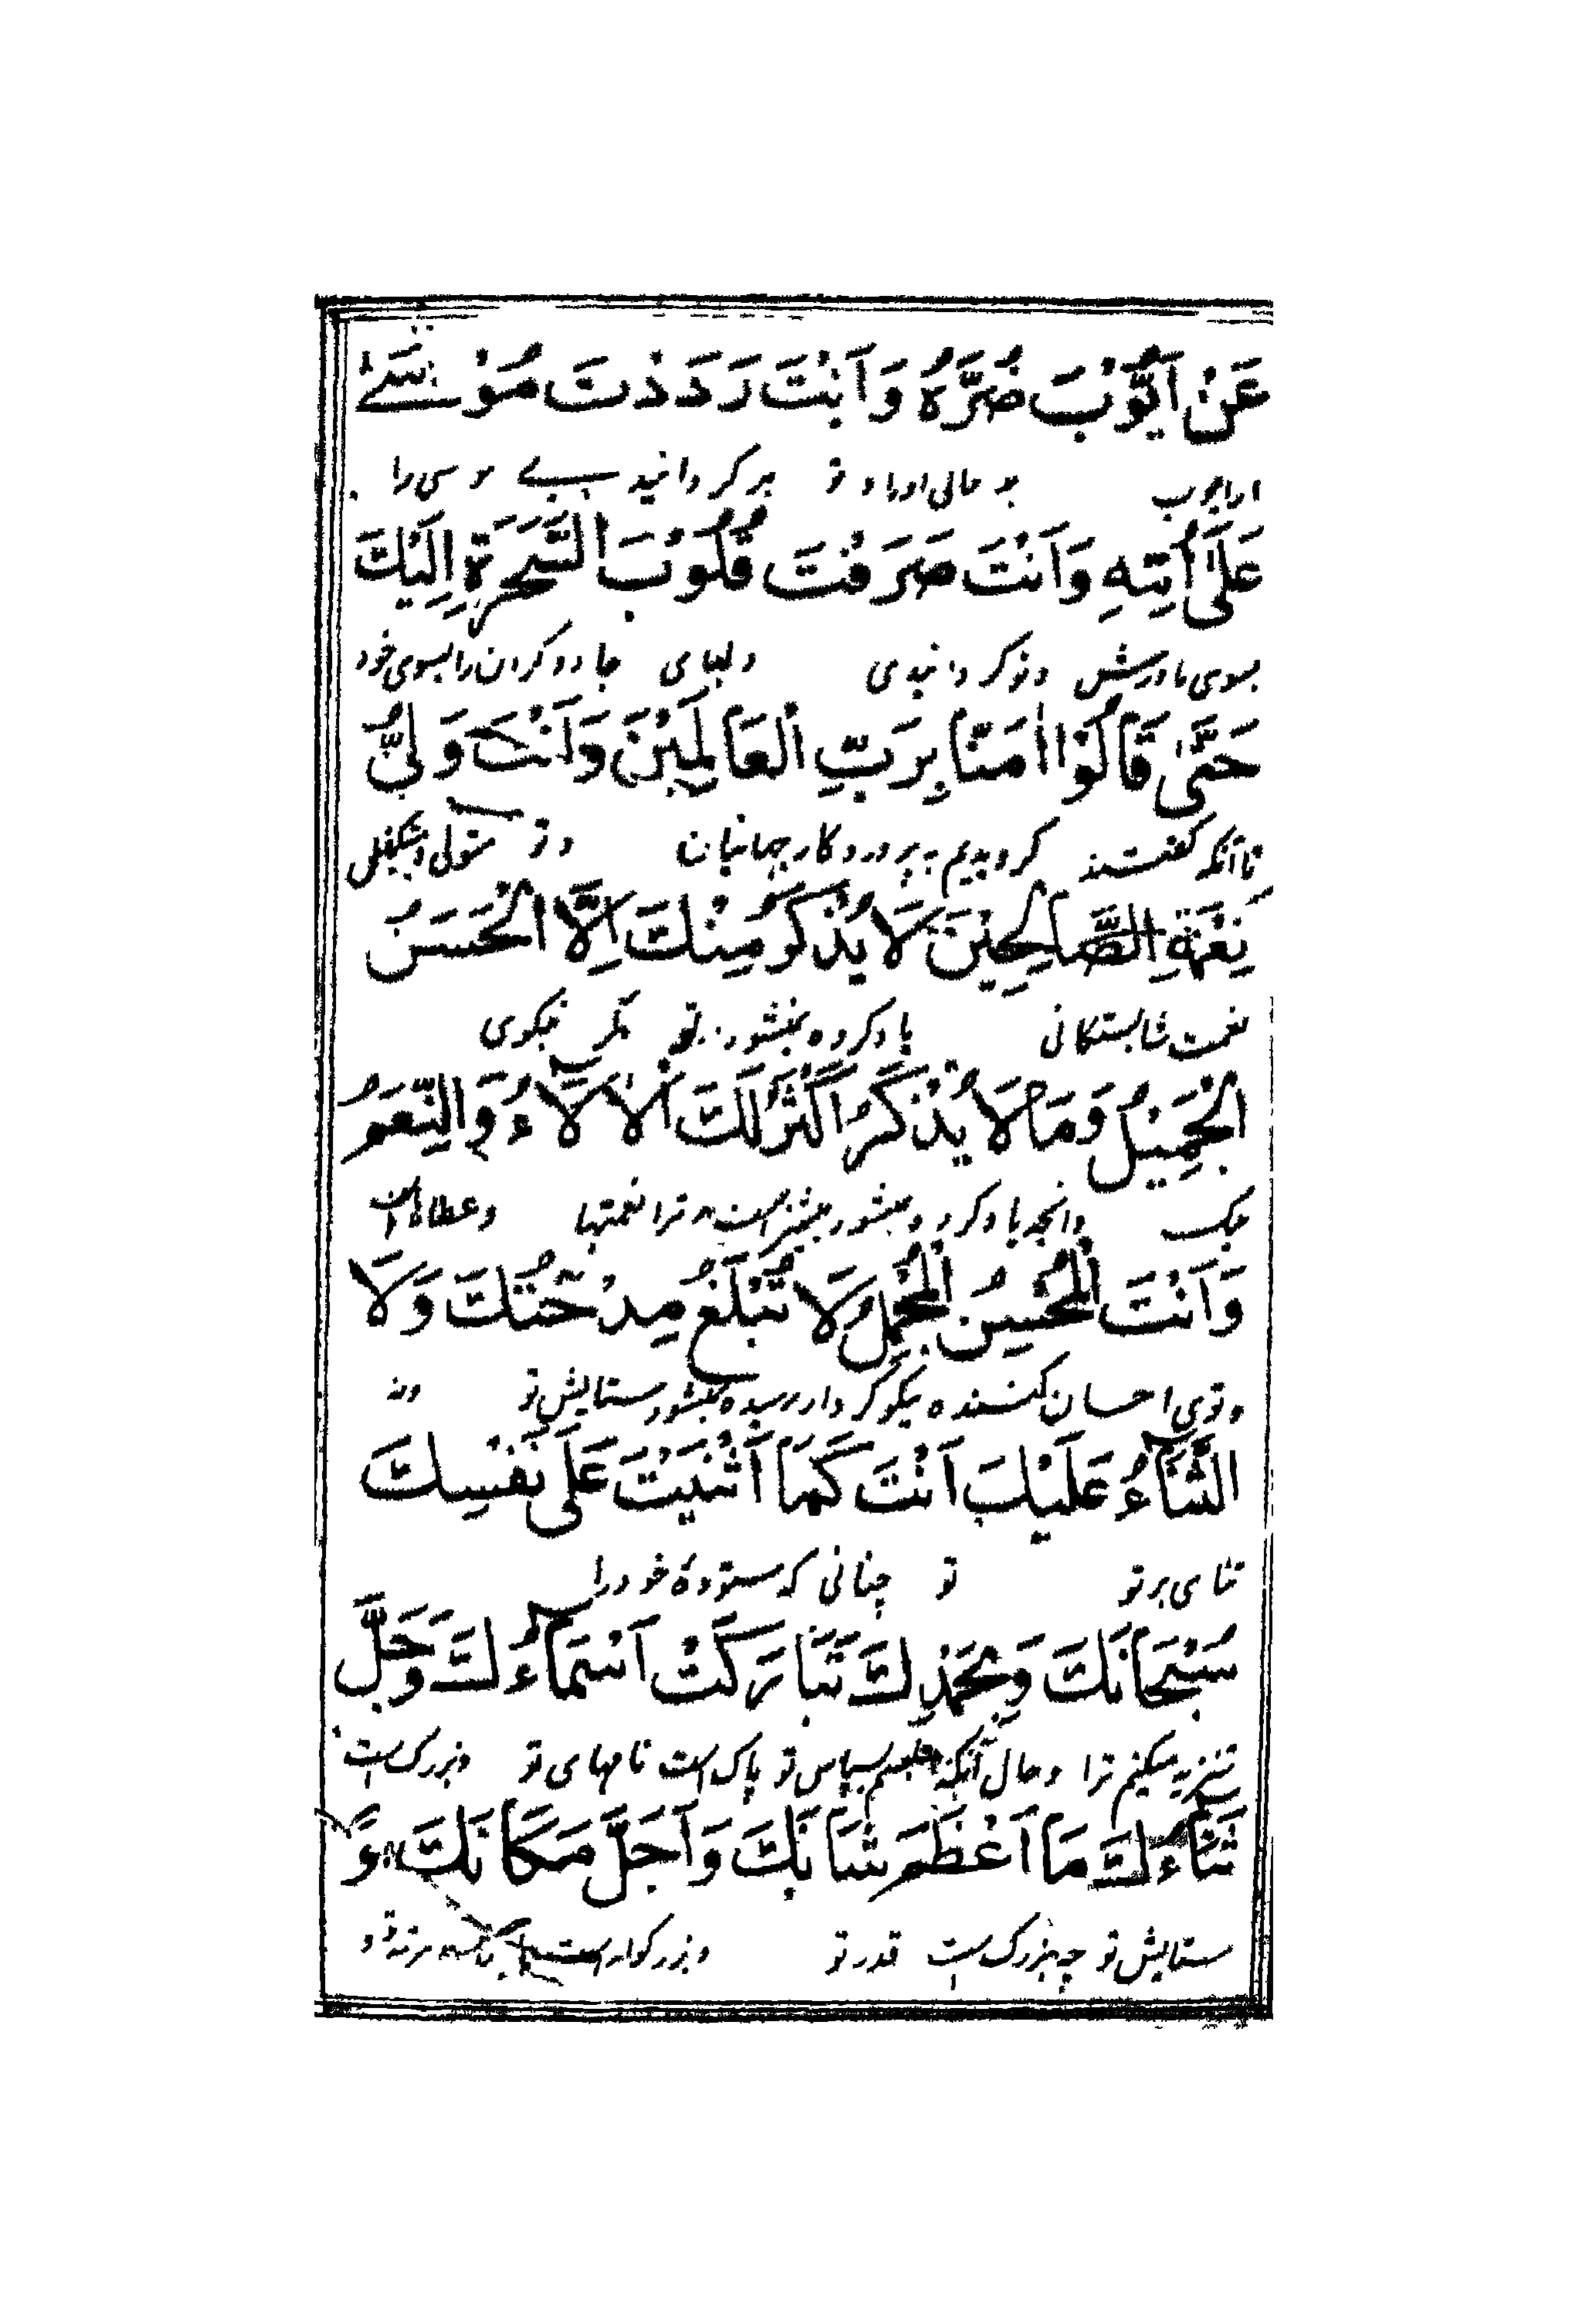 عَنْ اَيُّوْبَ ضُرَّهُ وَاَنْتَ رَدَدْتَ مُوْسٰی
از ایوب بد حالی او را و تو بر گردانیدی موسی را
عَلٰى اُمِّهِ وَاَنْتَ صَرَفْتَ قُلُوْبَ السَّحَرَةِ اِلَيْكَ
بسوی مادرش و تو گردانیدی دلهای جادوگران را بسوی خود
حَتّٰى قَالُوْا اٰمَنَّا بِرَبِّ الْعَالَمِيْنَ وَاَنْتَ وَلِيُّ
تا آنکه گفتند گرویدیم به پروردگار جهانیان و تو متولی
نِعْمَةِ الصَّالِحِيْنَ لَا يُذْكَرُ مِنْكَ اِلَّا الْحَسَنُ
نعمت شایستگانی یاد کرده نمیشود تو مگر نیکوی
الْجَمِيْلُ وَمَا لَا يُذْكَرُ اَكْثَرُ لَكَ الْاٰلَاءُ وَالنِّعَمُ
نیک وانچه یاد کرده نمیشود بیشتر است ترا نعمتها و عطاها
وَاَنْتَ الْمُحْسِنُ الْمُجْمِلُ لَا تُبْلَغُ مِدْحَتُكَ وَلَا
و توی احسان کننده نیکو کردار رسیده نمیشود ستایش تو ونه
الثَّنَاءُ عَلَيْكَ اَنْتَ كَمَا اَثْنَيْتَ عَلٰى نَفْسِكَ
ثنای بر تو تو چنانی که ستودهٔ خود را
سُبْحَانَكَ وَبِحَمْدِكَ تَبَارَكَتْ اَسْمَاءُكَ وَجَلَّ
تنزیه میکنم ترا و حال آنکه سپاس تو پاک است نامهای تو و بزرگ است
ثَنَاءُكَ مَا اَعْظَمَ شَانَكَ وَاَجَلَّ مَكَانَكَ وَ
ستایش تو چه بزرگ است قدر تو و بزرگوار است مرتبه تو و